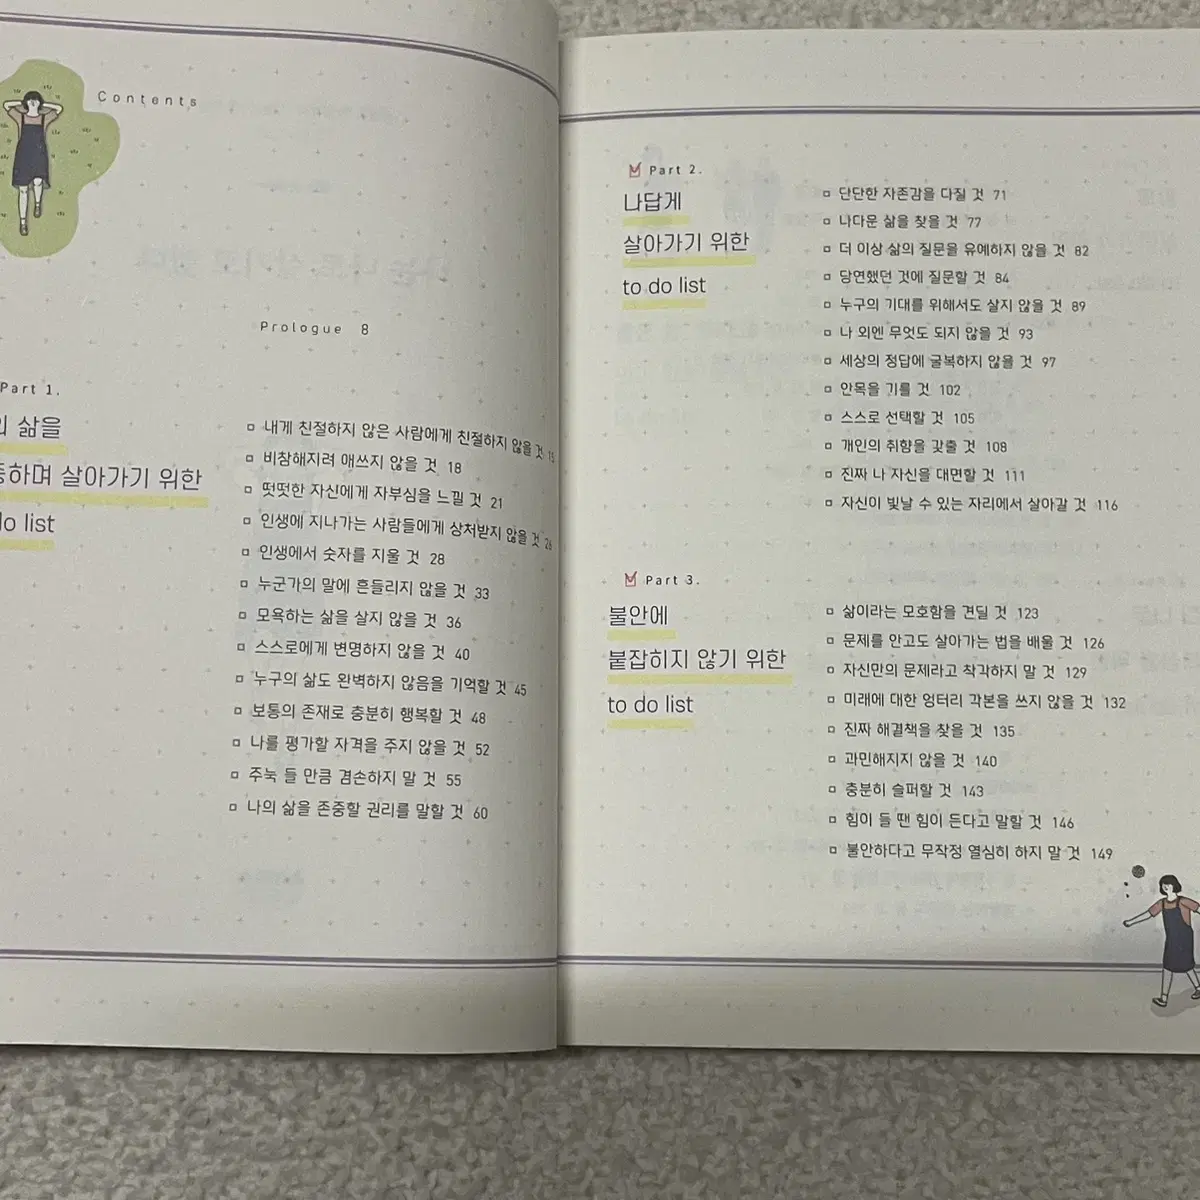 Contents
Prologue 8
Part 1.
삶을
살아가기 위한
list
내게 친절하지 않은 사람에게 친절하지 않을 것 15
비참해지려 애쓰지 않을 것 18
떳떳한 자신에게 자부심을 느낄 것 21
인생에 지나가는 사람들에게 상처받지 않을 것 26
인생에서 숫자를 지울 것 28
누군가의 말에 흔들리지 않을 것 33
모욕하는 삶을 살지 않을 것 36
스스로에게 변명하지 않을 것 40
누구의 삶도 완벽하지 않음을 기억할 것 45
보통의 존재로 충분히 행복할 것 48
나를 평가할 자격을 주지 않을 것 52
주눅 들 만큼 겸손하지 말 것 55
나의 삶을 존중할 권리를 말할 것 60
Part 2.
나답게
살아가기 위한
to do list
단단한 자존감을 다질 것 71
나다운 삶을 찾을 것 77
더 이상 삶의 질문을 유예하지 않을 것 82
당연했던 것에 질문할 것 84
누구의 기대를 위해서도 살지 않을 것 89
나 외엔 무엇도 되지 않을 것 93
세상의 정답에 굴복하지 않을 것 97
안목을 기를 것 102
스스로 선택할 것 105
개인의 취향을 갖출 것 108
진짜 나 자신을 대면할 것 111
자신이 빛날 수 있는 자리에서 살아갈 것 116
Part 3.
불안에
붙잡히지 않기 위한
to do list
삶이라는 모호함을 견딜 것 123
문제를 안고도 살아가는 법을 배울 것 126
자신만의 문제라고 착각하지 말 것 129
미래에 대한 엉터리 각본을 쓰지 않을 것 132
진짜 해결책을 찾을 것 135
과민해지지 않을 것 140
충분히 슬퍼할 것 143
힘이 들 땐 힘이 든다고 말할 것 146
불안하다고 무작정 열심히 하지 말 것 149